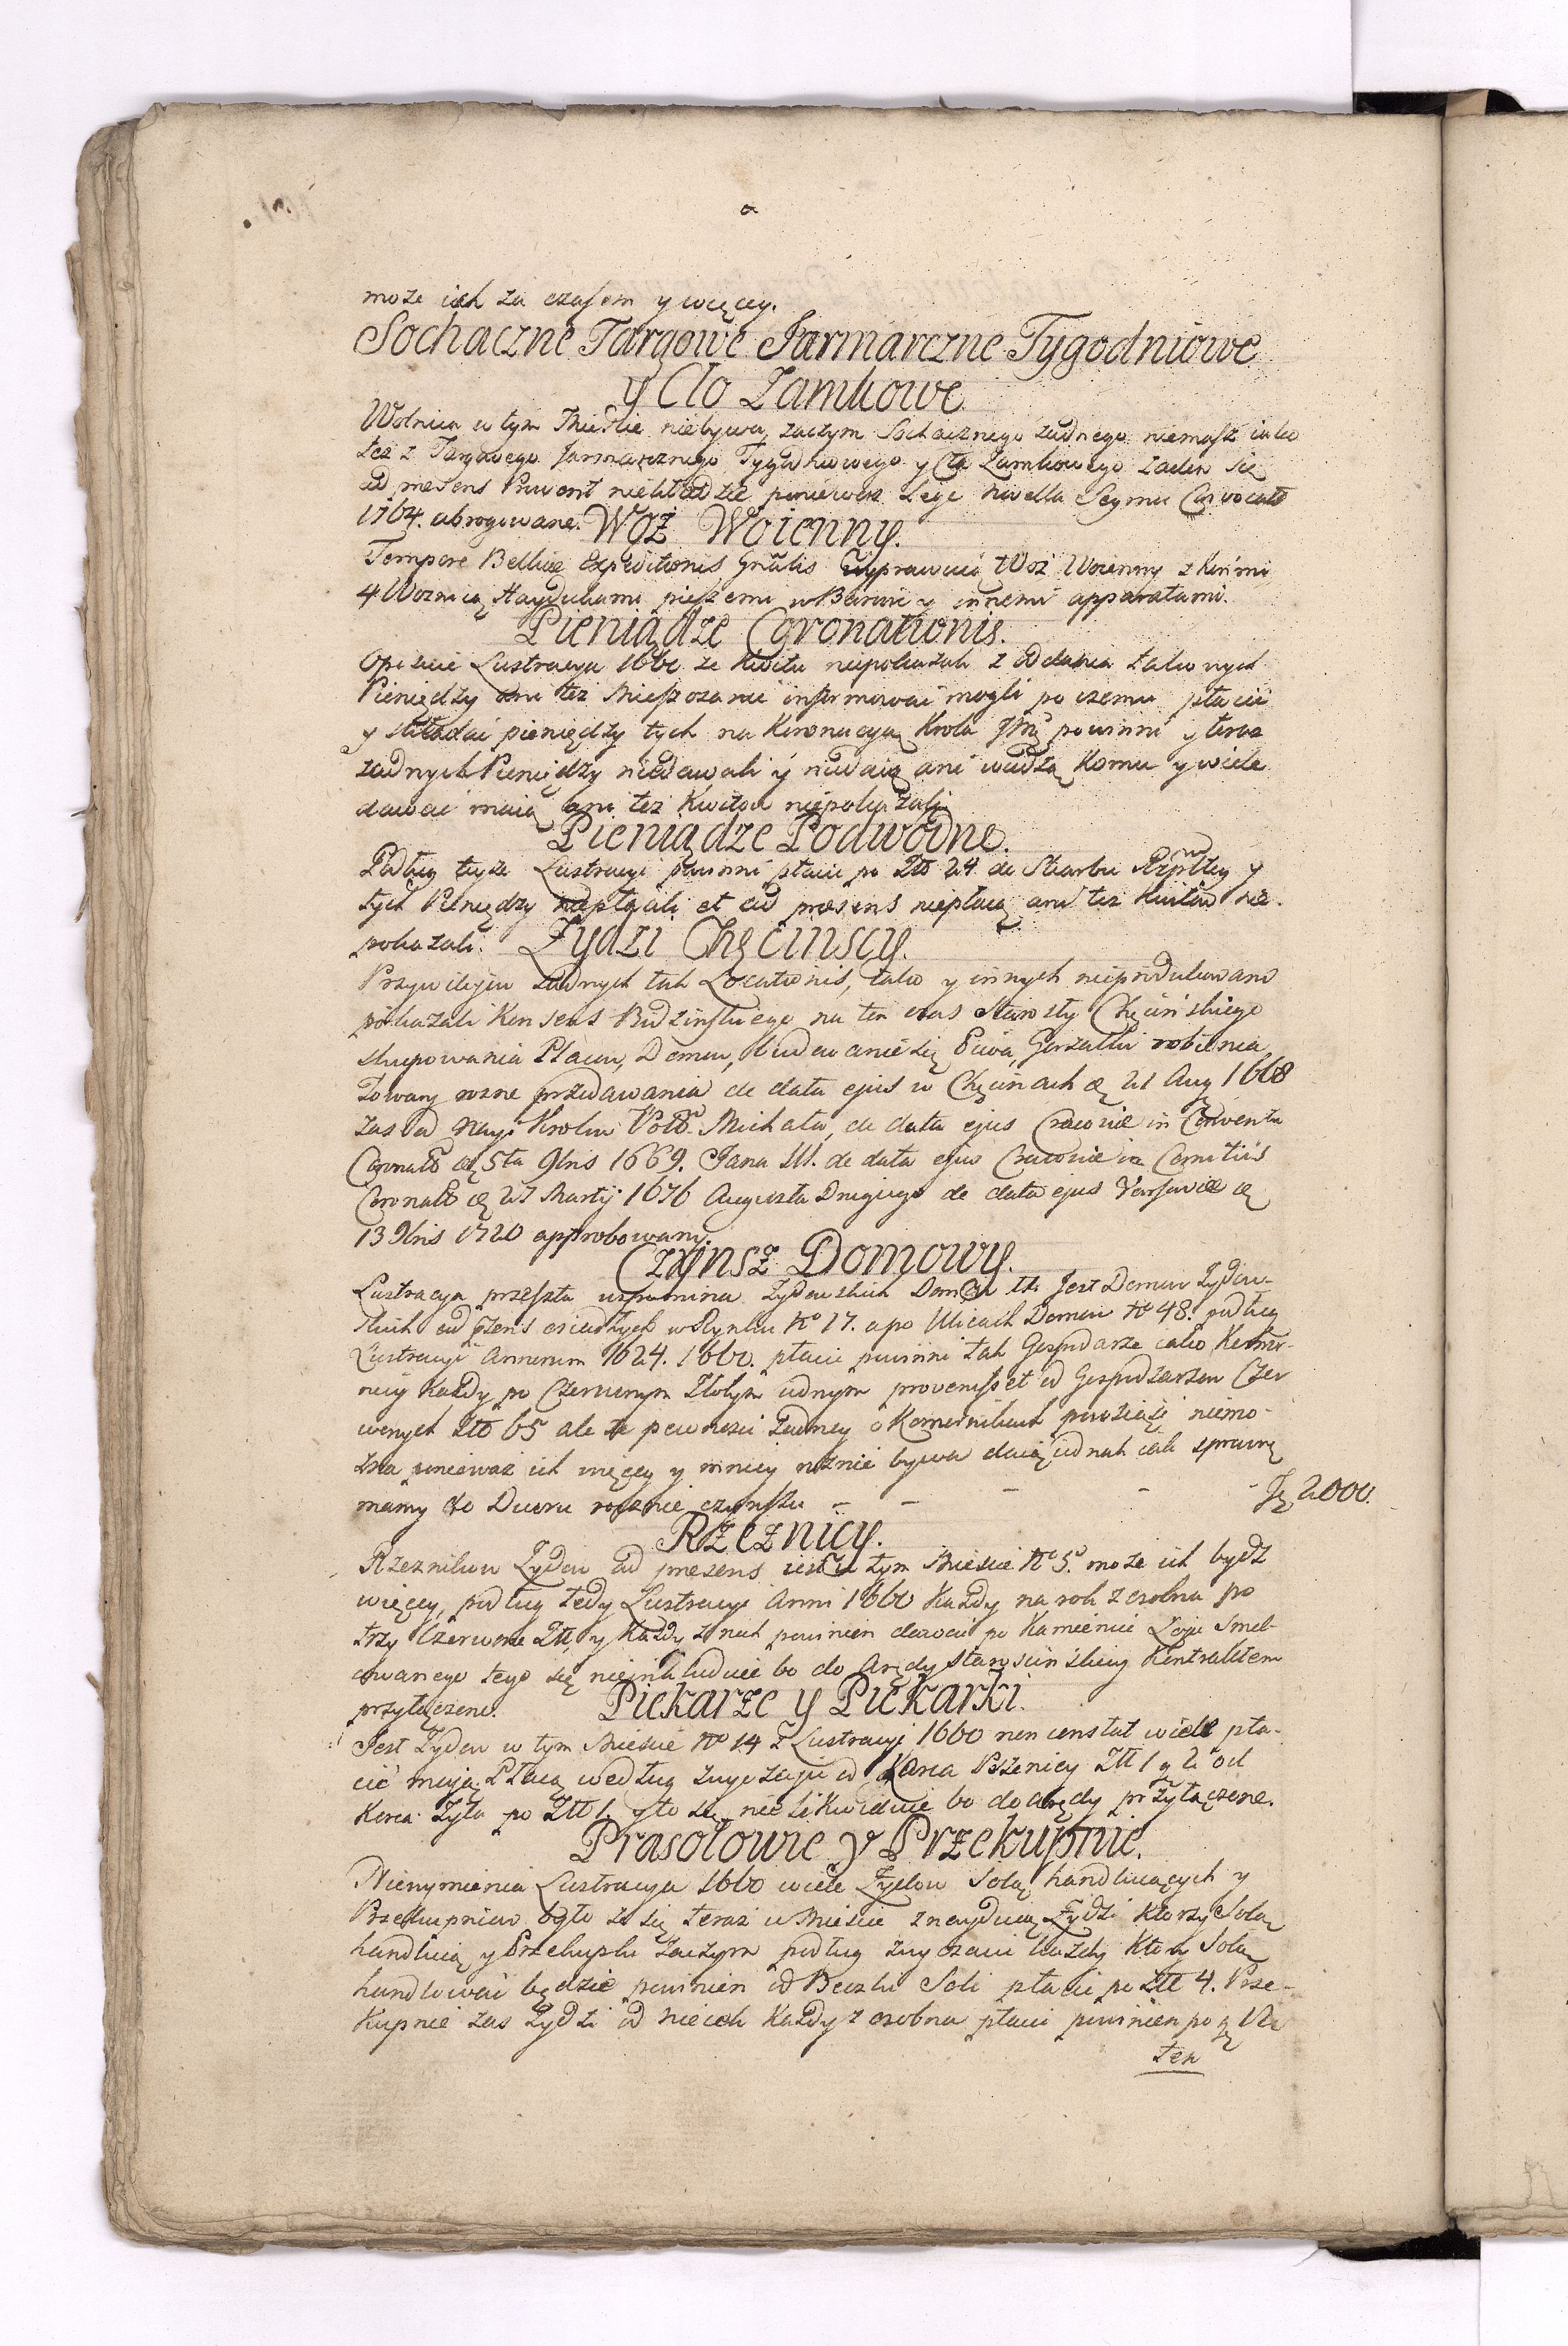 może ich za czasem y więcey.
Sochaczne Targowe Jarmarczne Tygodniowe
y Cło Zamkowe
Wolnica w tym Mieście niebywa, zaczym Sochacznego żadnego niemasz iako
też z Targowego Jarmarcznego Tygodniowego y Cła Zamkowego żaden się
ad presens Prowent niekładzie poniewasz Lege novella Seymu Convocats
1764. abrogowane. Woz Woienny.
Tempore Bellicæ Expeditionis Gnalis Wyprawuią Woz Woienny z Końmi
4 Woznicą Haydukami pieszemi w Barwie y innemi apparatami.
Pieniądze Coronationis.
Opisuie Lustracya 1660 że Kwitu niepokazali z oddania takowych
Pieniędzy ani też Mieszczanie informować mogli po czemu płacić
y składać pieniędzy tych na Koronacyą Krola Jmę powinni y teraz
żadnych Pieniędzy niedawali ÿ niedaią ani wiedzą Komu y wiele
dawać maią ani też Kwitow niepokazali
Pieniądze Podwodne.
Podług teyże Lustracyi powinni płacić po Złł 24 do Skarbu Rzpltey y
tych Pieniędzy niepłacili et ad præsens niepłacą ani też Kwitow nie-
pokazali. Zydzi Chęcinscy.
Przywileiow żadnych tak Locationis, iako y innych nieprodukowano
pokazali Konsens Bidzinskiego na ten czas Starosty Chęcińskiego
skupowania Placow, Domow, budowanie się Piwa, Gorzałki robienia
Towary rozne przedawania de data ejus w Chęcinach d. 21 Aug 1668
zas od Nayi Krolow Pols. Michała, de data ejus Cracoviæ in Conventu
Coronats d. 5ta 9bris 1669. Jana III. de data ejus Cracoviæ in Comitiis
Coronats d. 27 Martij 1676 Augusta Drugiego de data ejus Varsaviæ d.
13 9bris 1720 approbowany.
Czynsz Domowy.
Lustracya przeszła wspomina Zydowskich Domow 12. Jest Domow Zydow-
skich ad pzens osiadłych w Rynku No 17. a po Ulicach Domow No 48. podług
Lustracyi Annorum 1624. 1660. płacić powinni tak Gospodarze iako Komor-
nicy Każdy po Czerwonym Złotym iednym provenisset od Gospodarzow Czer
wonych Złł 65 ale że pewności żadney o Komornikach powziąść niemo-
żna ponieważ ich więcey y mniey roznie bywa daią iednak iak sprawę
mamy do Dworu rocznie czynszu - - - - - 2000.
Rzeznicy.
Rzeznikow Zydow ad presens iest w tym Mieście No 5. może ich bydz
więcey, podług tedy Lustracyi Anni 1660 Każdy na rok z osobna po
trzy Czerwone Złł, y Każdy z nich powinien dawać po Kamieniu Łoju smel-
cowanego tego się nieinkluduie bo do Arędy Starościńskiey Kontraktem
przyłączone. Piekarze y Piekarki.
Jest Zydow w tym Mieście No 14 z Lustracyi 1660 non constat wiele pła-
cić maią. Płacą według zwyczaju od Korca Pszenicy Złł 1 g 6 od
Korca Zyta po Złł 1. y to się nie likwiduie bo do arędy przyłączone.
Prasołowie y Przekupnie.
Niewymienia Lustracya 1660 wiele Zydow Solą handluiących y
Przekupniow było że się teraz w Mieście znayduią Zydzi Ktorzy Solą
handluią y Przekupki zaczym podług zwyczaiu każdy Ktory Solą
handlować będzie powinien od Beczki Soli płacić po Złł 4. Prze-
Kupnie zas Zydzi od niecek Każdy z osobna płacić powinien po g
ten